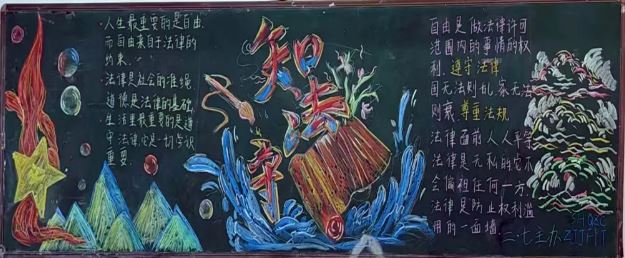 ·人生最重要的是自由,
而自由来自于法律的
约束.
·法律是社会的准绳,
道德是法律的基础.
·生活里最重要的是遵
守法律,它是一切学识
重要.
知
法
守
自由是做法律许可
范围内的事情的权
利. 遵守法律
国无法则乱,家无法
则衰 尊重法规
法律面前人人平等
法律是无私的它不
会偏袒任何一方.
法律是防止权利滥
用的一面墙
三.七主办